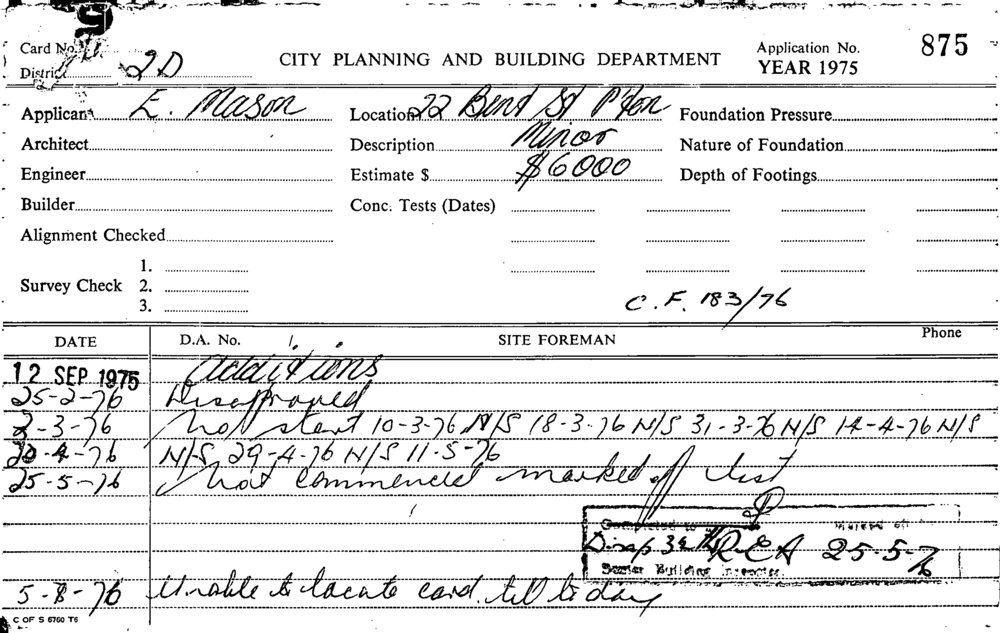 Card No.
District 2D
CITY PLANNING AND BUILDING DEPARTMENT
Application No. 875
YEAR 1975
Applicant E. Mason
Location 22 Bent St P'ton
Foundation Pressure
Architect
Description Minor
Nature of Foundation
Engineer
Estimate $ $6000
Depth of Footings
Builder
Conc. Tests (Dates)
Alignment Checked
Survey Check 1.
2.
3.
C.F. 183/76
DATE D.A. No. SITE FOREMAN Phone
12 SEP 1975 Additions
25-2-76 Disapproved
2-3-76 Not start 10-3-76 N/S 18-3-76 N/S 31-3-76 N/S 14-4-76 N/S
20-4-76 N/S 29-4-76 N/S 11-5-76
25-5-76 Not commenced marked off list
Completed to
Disap REA 25-5-76
Senior Building Inspector
5-8-76 Unable to locate card till today
C OF S 6760 T6